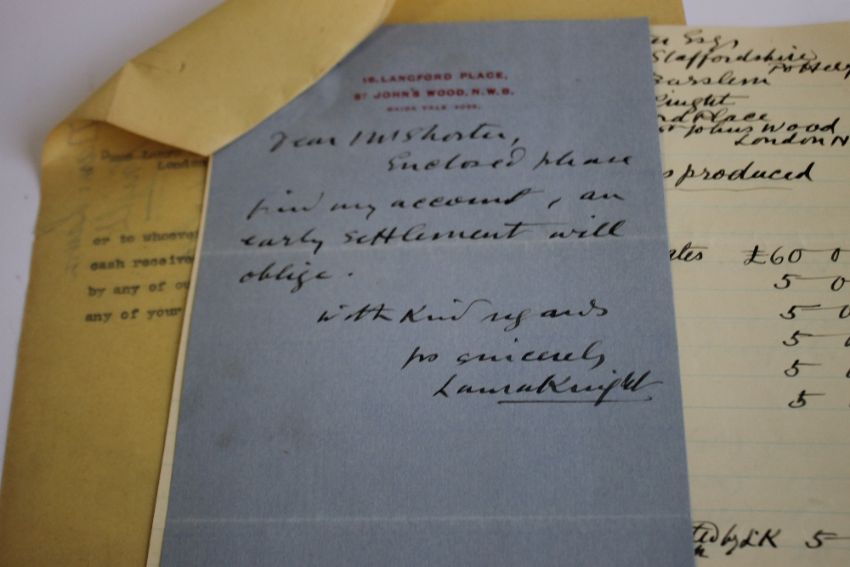 16, LANGFORD PLACE,
ST JOHN'S WOOD, N.W.8.
MAIDA VALE
Dear Mr Shorter,
Enclosed please
find my account, an
early settlement will
oblige.
With Kind regards
yrs sincerely
Laura Knight
London
or to whoever
cash receive
by any of ou
any of your
Esqs
Staffordshire
Pottery
Burslem
Knight
rd Place
St Johns Wood
London N
s produced
ates £60 0
5 0
5 0
5 0
5 0
5
ted by LK 5